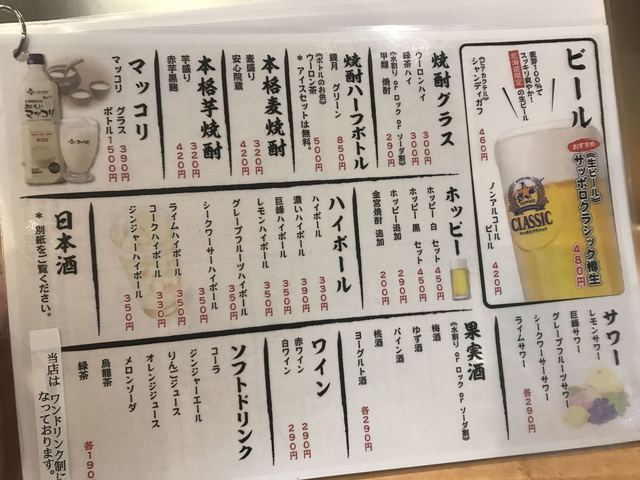 ビール
麦芽100%で
スッキリ爽やか
北海道限定の生ビール
おすすめ
《生ビール》
サッポロクラシック樽生
480円
CLASSIC
サッポロクラシック
《ビアカクテル》
シャンディガフ
460円
ノンアルコール
ビール
420円
焼酎グラス
ウーロンハイ 300円
緑茶ハイ 300円
《水割り or ロック or ソーダ割》
甲類 焼酎 290円
焼酎ハーフボトル
鏡月 グリーン 850円
《ボトルのお供》
ウーロン茶 500円
*アイスセットは無料。
本格麦焼酎
壹盛り 320円
安心院蔵 420円
本格芋焼酎
芋盛り 320円
赤芋黒麹 420円
マッコリ
マッコリ グラス 390円
マッコリ ボトル 1500円
マッコリ
ホッピー
ホッピー白 セット 450円
ホッピー黒 セット 450円
ホッピー追加 290円
金宮焼酎 追加 200円
ハイボール
ハイボール 330円
濃いハイボール 390円
巨峰ハイボール 350円
レモンハイボール 350円
グレープフルーツハイボール 350円
シークワーサーハイボール 350円
ライムハイボール 350円
コークハイボール 330円
ジンジャーハイボール 350円
日本酒
*別紙をご覧ください。
サワー
レモンサワー
巨峰サワー
グレープフルーツサワー
シークワーサーサワー
ライムサワー
各290円
果実酒
《水割り or ロック or ソーダ割》
梅酒
ゆず酒
パイン酒
桃酒
ヨーグルト酒
各290円
ワイン
赤ワイン 290円
白ワイン 290円
ソフトドリンク
コーラ
ジンジャーエール
りんごジュース
オレンジジュース
メロンソーダ
烏龍茶
緑茶
各190
当店は ワンドリンク制に
なっております。